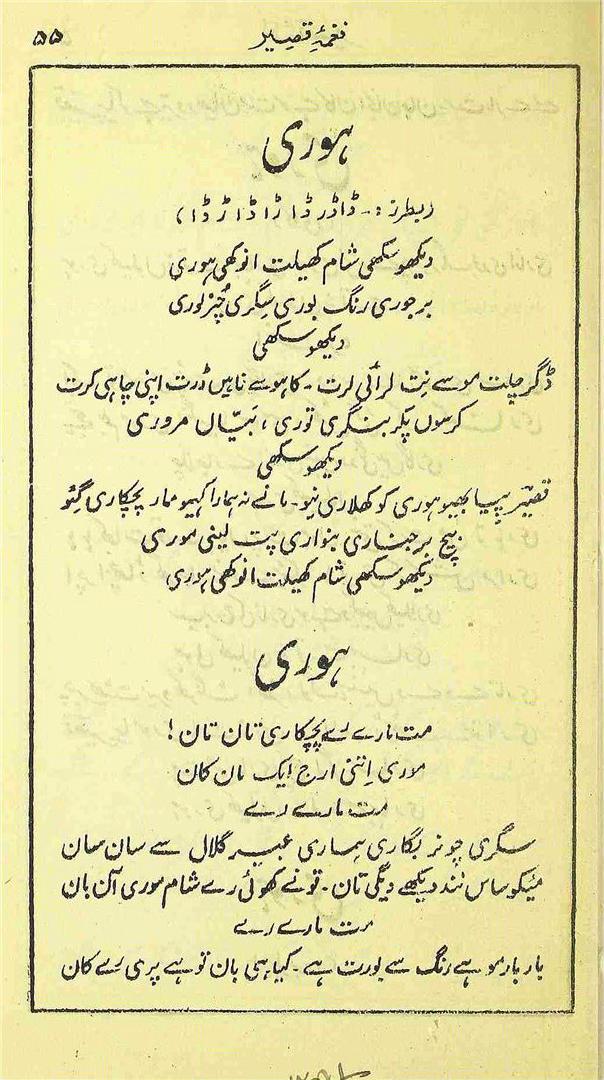 ۵۵
نغمۂ قصیر
ہوری
(بطرز :- ڈا ڈر ڈا ڑا ڈا ڑ ڈا)
دیکھو سکھی شام کھیلت انوکھی ہوری
برجوری رنگ بوری سگری چُنرلوری
دیکھو سکھی
ڈگر چلت موسے نِت لرائی لرت - کاہو سے ناہیں ڈرت اپنی چاہی کرت
کرسوں پکر بنگری توری ، بَیّاں مروری
دیکھو سکھی
قصیر پیا بھیو ہوری کو کھلاری نیو - مانے نہ ہمارا کہیو مار پچکاری گئو
بیچ برجناری بنواری پت لینی موری
دیکھو سکھی شام کھیلت انوکھی ہوری
ہوری
مت مارے رے پچکاری تان تان !
موری اِتنی ارج ایک مان کان
مت مارے رے
سگری چونر بگاری ہماری عبیر گلال سے سان سان
میکو ساس نند دیکھے دیگی تان - تو نے کھوئی رے شام موری آن بان
مت مارے رے
بار بار موہے رنگ سے بورت ہے - کیا ہی بان توہے پری رے کان